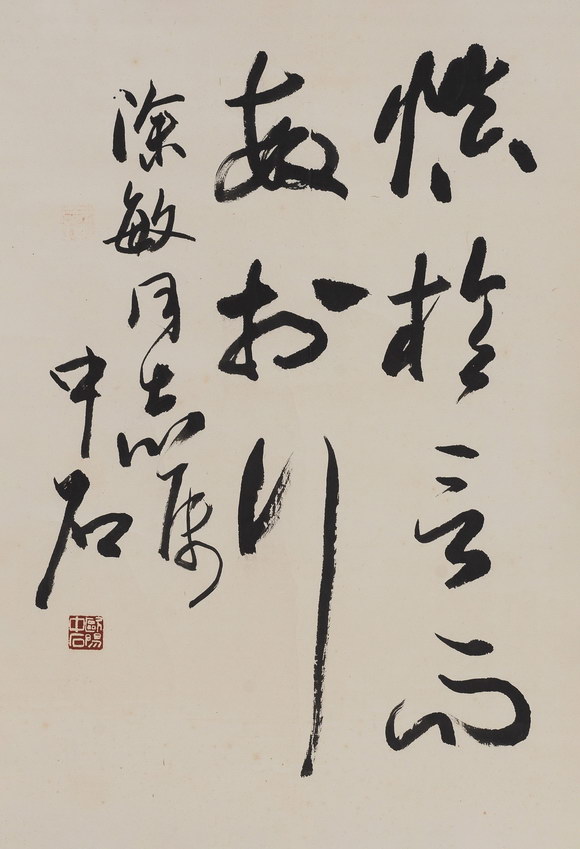 慎於言而
敏於行
敏同志属
中石
歐陽中石